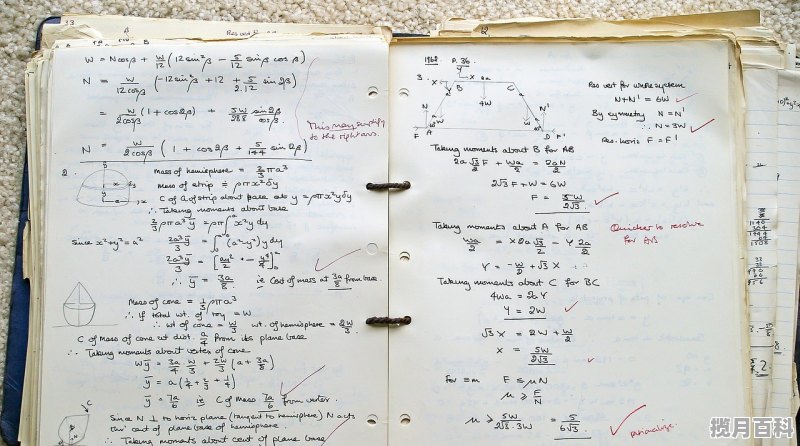 33
W = Ncosβ + W/12 (12sin²β − 5/12 sinβ cosβ)
N = W/12cosβ (-12sin²β + 12 + 5/2.12 sin2β)
= W/2cosβ (1 + cos2β) + 5W/288 sin2β/cosβ.
This may simplify
to the right ans.
N = W/2cosβ (1 + cos2β + 5/144 sin2β)
2.
Mass of hemisphere = 2/3 πa³
Mass of strip = ρπx²δy
C of G of strip about base as y = ρπx²yδy
∴ Taking moments about base
2/3 ρπa³ȳ = ρπ∫x²y dy
since x²+y² = a²
2a³ȳ/3 = ∫(a²-y²)y dy
2a³ȳ/3 = [ay²/2 - y⁴/4]
∴ ȳ = 3a/8 ie Cent of mass at 3a/8 from base.
Mass of cone = 1/3 ρπa³
∴ If total wt. of toy = W
∴ wt of cone = W/3 wt. of hemisphere = 2W/3
C of Mass of cone at dist. a/4 from its plane base
∴ Taking moments about vertex of cone
Wȳ = 3a/4 W/3 + 2W/3 (a + 3a/8)
ȳ = a(1/4 + 2/3 + 1/4)
ȳ = 7a/6 ie C of Mass 7a/6 from vertex.
Since N ⊥ to horiz plane (tangent to hemisphere) N acts
thro' cent of plane base of hemisphere.
∴ Taking moments about cent of plane base
1962 P. 36
3.
X X 2a
B C
4W
N N'
W W
F A D F'
Res vert for whole system
N + N' = 6W
By symmetry N = N'
∴ N = 3W
Res. horiz F = F'
Taking moments about B for AB
2a√3/2 F + Wa/2 = 2aN/2
2√3F + W = 6W
F = 5W/2√3
Taking moments about A for AB
Wa/2 = X2a√3/2 − Y 2a/2
Quicker to resolve
for AB
Y = −W/2 + √3 X
Taking moments about C for BC
4Wa = 2aY
Y = 2W
√3X = 2W + W/2
X = 5W/2√3
for =m F ≤ μN
μ ≥ F/N
μ ≥ 5W/2√3.3W = 5/6√3
rationalize.
揽月百科